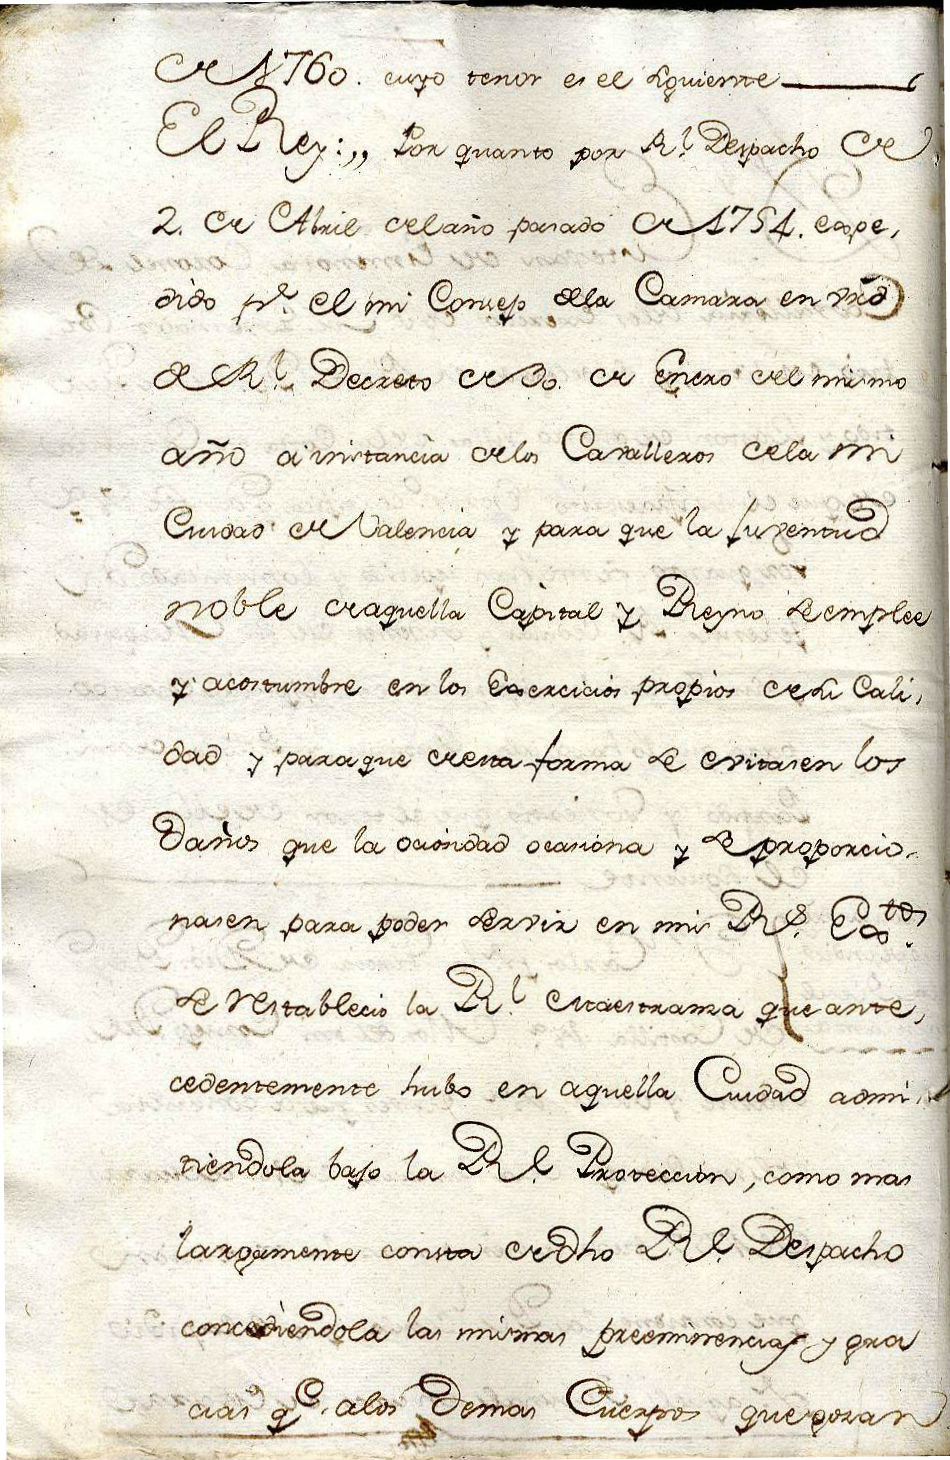 de 1760. cuyo tenor es el siguiente
El Rey:,, Por quanto por Rl. Despacho de
2. de Abril del año pasado de 1754. expe,
dido pr. el mi Consejo de la Camara en vrd
de Rl. Decreto de 30. de Enero del mismo
año a instancia de los Cavalleros de la mi
Ciudad de Valencia y para que la Juventud
noble de aquella Capital y Reyno se emplee
y acostumbre en los Exercicios propios de su Cali,
dad y para que de esta forma se evitasen los
Daños que la ociosidad ocasiona y se proporcio,
nasen para poder servir en mis Rs. Extos.
se restablecio la Rl. Maestranza que ante,
cedentemente hubo en aquella Ciudad admi,
tiendola bajo la Rl. Proteccion, como mas
largamente consta de dho Rl. Despacho
concediendola las mismas preeminencias y gra
cias qe. a los Demas Cuerpos que gozan